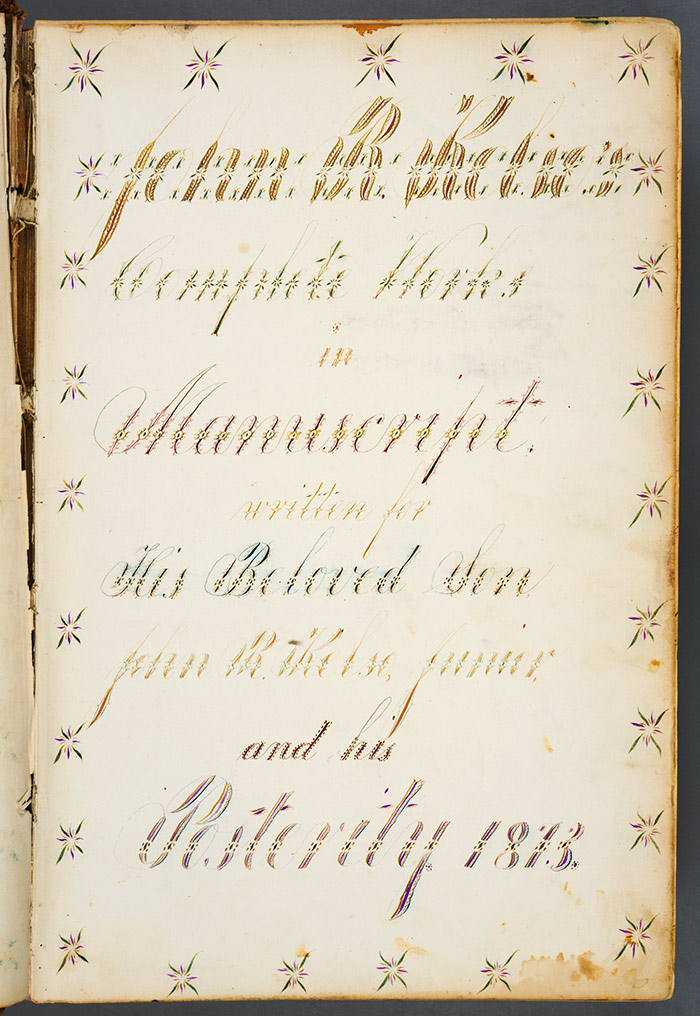 John R. Kelso's
Complete Works
in
Manuscript.
written for
His Beloved Son,
John R. Kelso, Junior,
and his
Posterity 1873.